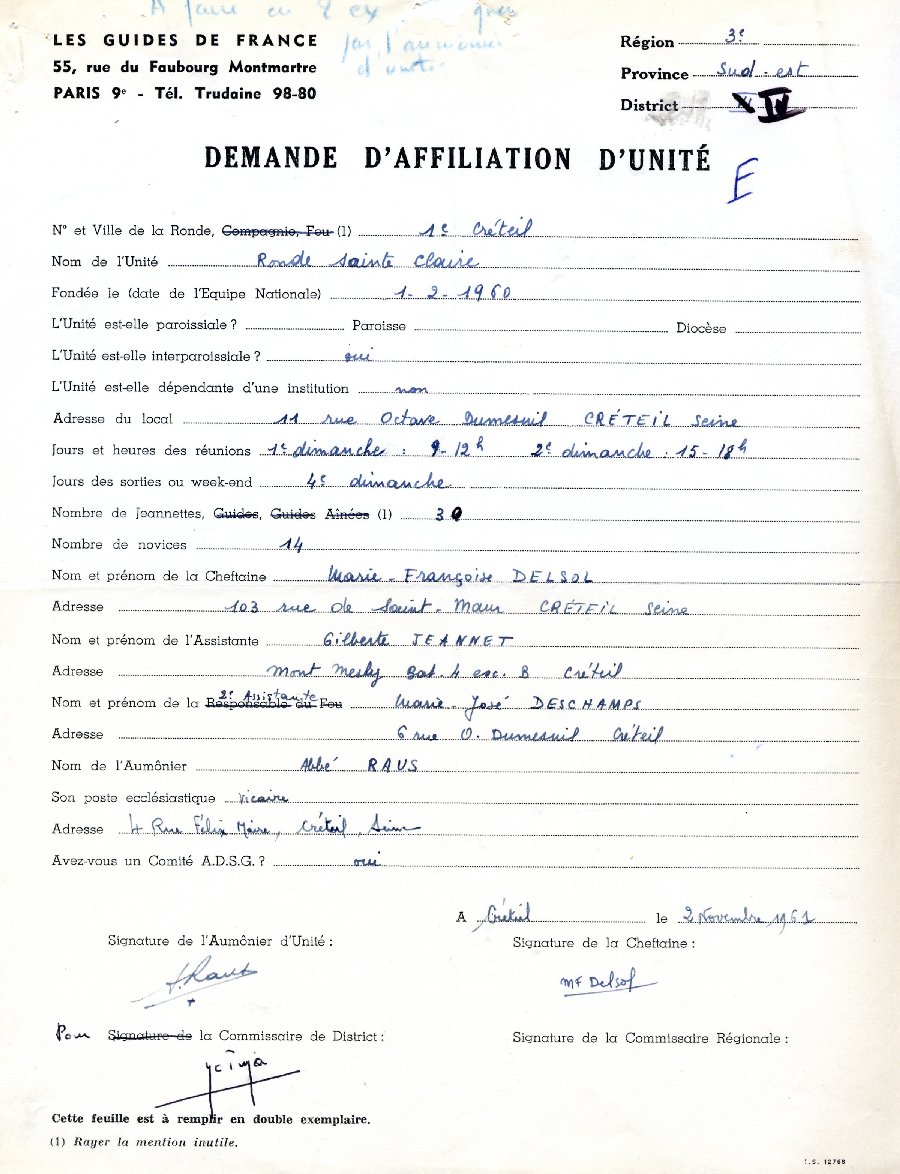 A faire en 2 ex
par l'aumonier
d'unité
LES GUIDES DE FRANCE
55, rue du Faubourg Montmartre
PARIS 9e - Tél. Trudaine 98-80
Région 3e
Province Sud-est
District IV
DEMANDE D'AFFILIATION D'UNITÉ
E
N° et Ville de la Ronde, Compagnie, Feu (1) 1e Créteil
Nom de l'Unité Ronde Sainte Claire
Fondée le (date de l'Equipe Nationale) 1-2-1960
L'Unité est-elle paroissiale ? Paroisse Diocèse
L'Unité est-elle interparoissiale ? oui
L'Unité est-elle dépendante d'une institution non
Adresse du local 11 rue Octave Dumesnil CRÉTEIL Seine
Jours et heures des réunions 1e dimanche : 9-12h 2e dimanche . 15-18h
Jours des sorties ou week-end 4e dimanche
Nombre de Jeannettes, Guides, Guides Aînées (1) 30
Nombre de novices 14
Nom et prénom de la Cheftaine Marie-Françoise DELSOL
Adresse 103 rue de Saint-Maur CRÉTEIL Seine
Nom et prénom de l'Assistante Gilberte JEANNET
Adresse Mont Mesly Bat. 4 esc. B Créteil
2e Assistante
Nom et prénom de la Responsable du Feu Marie-José DESCHAMPS
Adresse 6 rue O. Dumesnil Créteil
Nom de l'Aumônier Abbé RAUS
Son poste ecclésiastique vicaire
Adresse 4 Rue Félix Maire, Créteil, Seine
Avez-vous un Comité A.D.S.G. ? oui
A Créteil le 2 Novembre 1961
Signature de l'Aumônier d'Unité :
Signature de la Cheftaine :
J. Raus
MF Delsol
Pour Signature de la Commissaire de District :
Signature de la Commissaire Régionale :
Cette feuille est à remplir en double exemplaire.
(1) Rayer la mention inutile.
I.S. 12768